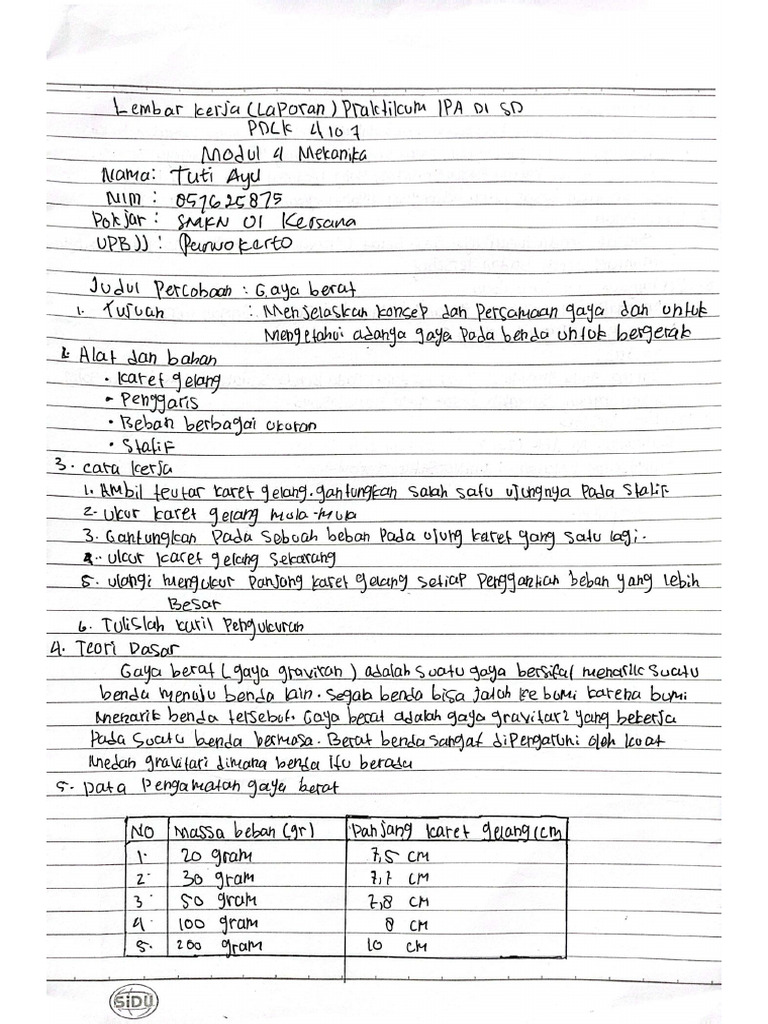 Lembar kerja (Laporan) Praktikum IPA DI SD
PDGK 4107
Modul 4 Mekanika
Nama: Tuti Ayu
NIM : 857625875
Pokjar : SMKN 01 Kersana
UPBJJ : Purwokerto
Judul Percobaan : Gaya berat
1. Tujuan : Menjelaskan konsep dan Persamaan gaya dan untuk
Mengetahui adanya gaya pada benda untuk bergerak
2. Alat dan bahan
• Karet gelang
• Penggaris
• Beban berbagai ukuran
• Statif
3. Cara kerja
1. Ambil seutar karet gelang. gantungkan salah satu ujungnya pada statif
2. Ukur karet gelang mula-mula
3. Gantungkan pada sebuah beban pada ujung karet yang satu lagi.
4. Ukur karet gelang sekarang
5. Ulangi mengukur panjang karet gelang setiap penggantian beban yang lebih
Besar
6. Tulislah hasil pengukuran
4. Teori Dasar
Gaya berat (gaya gravitasi) adalah suatu gaya bersifat menarik suatu
benda menuju benda lain. Segala benda bisa jatuh ke bumi karena bumi
menarik benda tersebut. Gaya berat adalah gaya gravitasi yang bekerja
pada suatu benda bermasa. Berat benda sangat dipengaruhi oleh kuat
medan gravitasi dimana benda itu berada
5. Data Pengamatan gaya berat
NO Massa beban (gr) Panjang karet gelang (cm
1. 20 gram 7,5 cm
2. 30 gram 7,7 cm
3. 50 gram 7,8 cm
4. 100 gram 8 cm
5. 200 gram 10 cm
SiDU